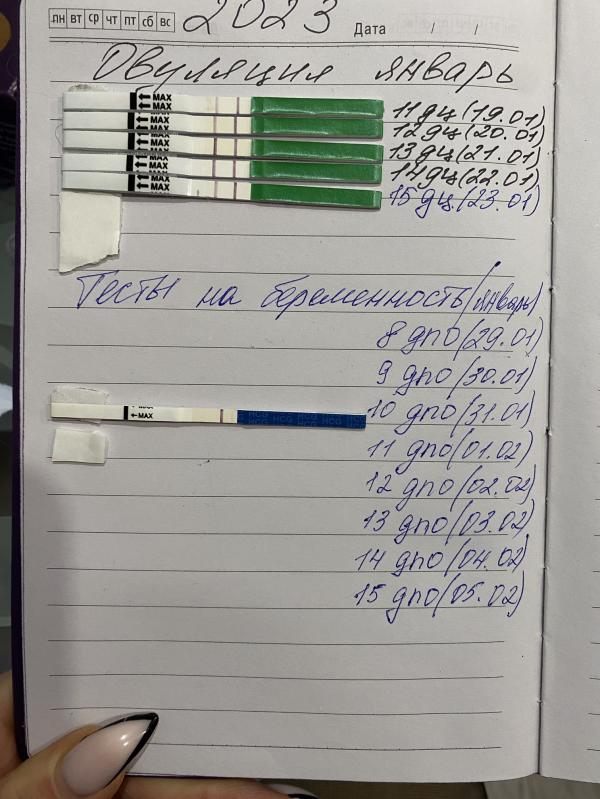 пн вт ср чт пт сб вс
2023
Дата / /
Овуляция январь
← MAX
← MAX
11 дц (19.01)
← MAX
12 дц (20.01)
← MAX
13 дц (21.01)
← MAX
14 дц (22.01)
← MAX
15 дц (23.01)
Тесты на беременность (январь)
8 дпо (29.01)
9 дпо (30.01)
← MAX HCG HCG HCG HCG HCG 10 дпо (31.01)
11 дпо (01.02)
12 дпо (02.02)
13 дпо (03.02)
14 дпо (04.02)
15 дпо (05.02)